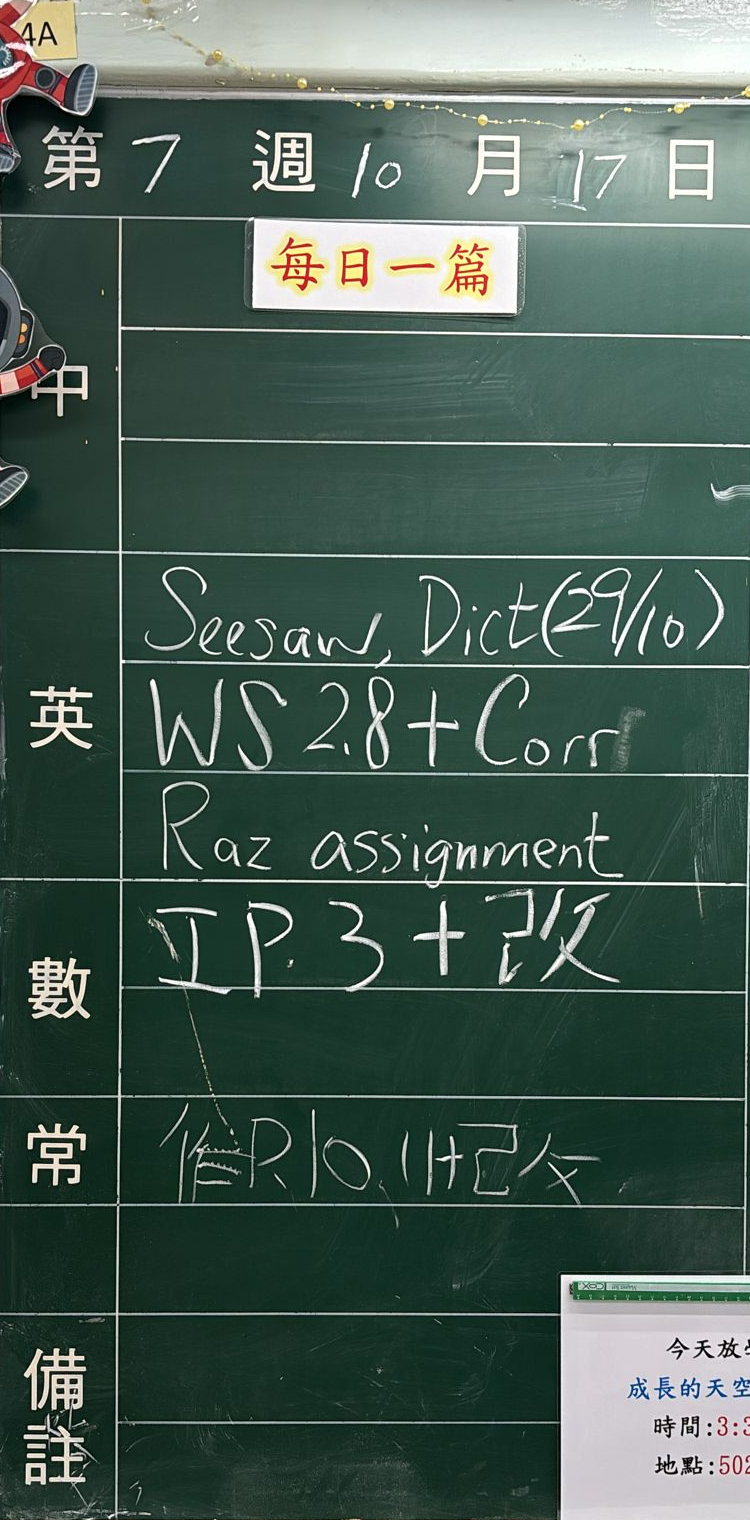 4A
第 7 週 10 月 17 日
每日一篇
中
英
Seesaw, Dict(29/10)
WS 2.8 + Corr
Raz assignment
數
工 P. 3 + 改
常
P.10, 11+改
備註
COX
今天放
成長的天空
時間:3:3
地點:502